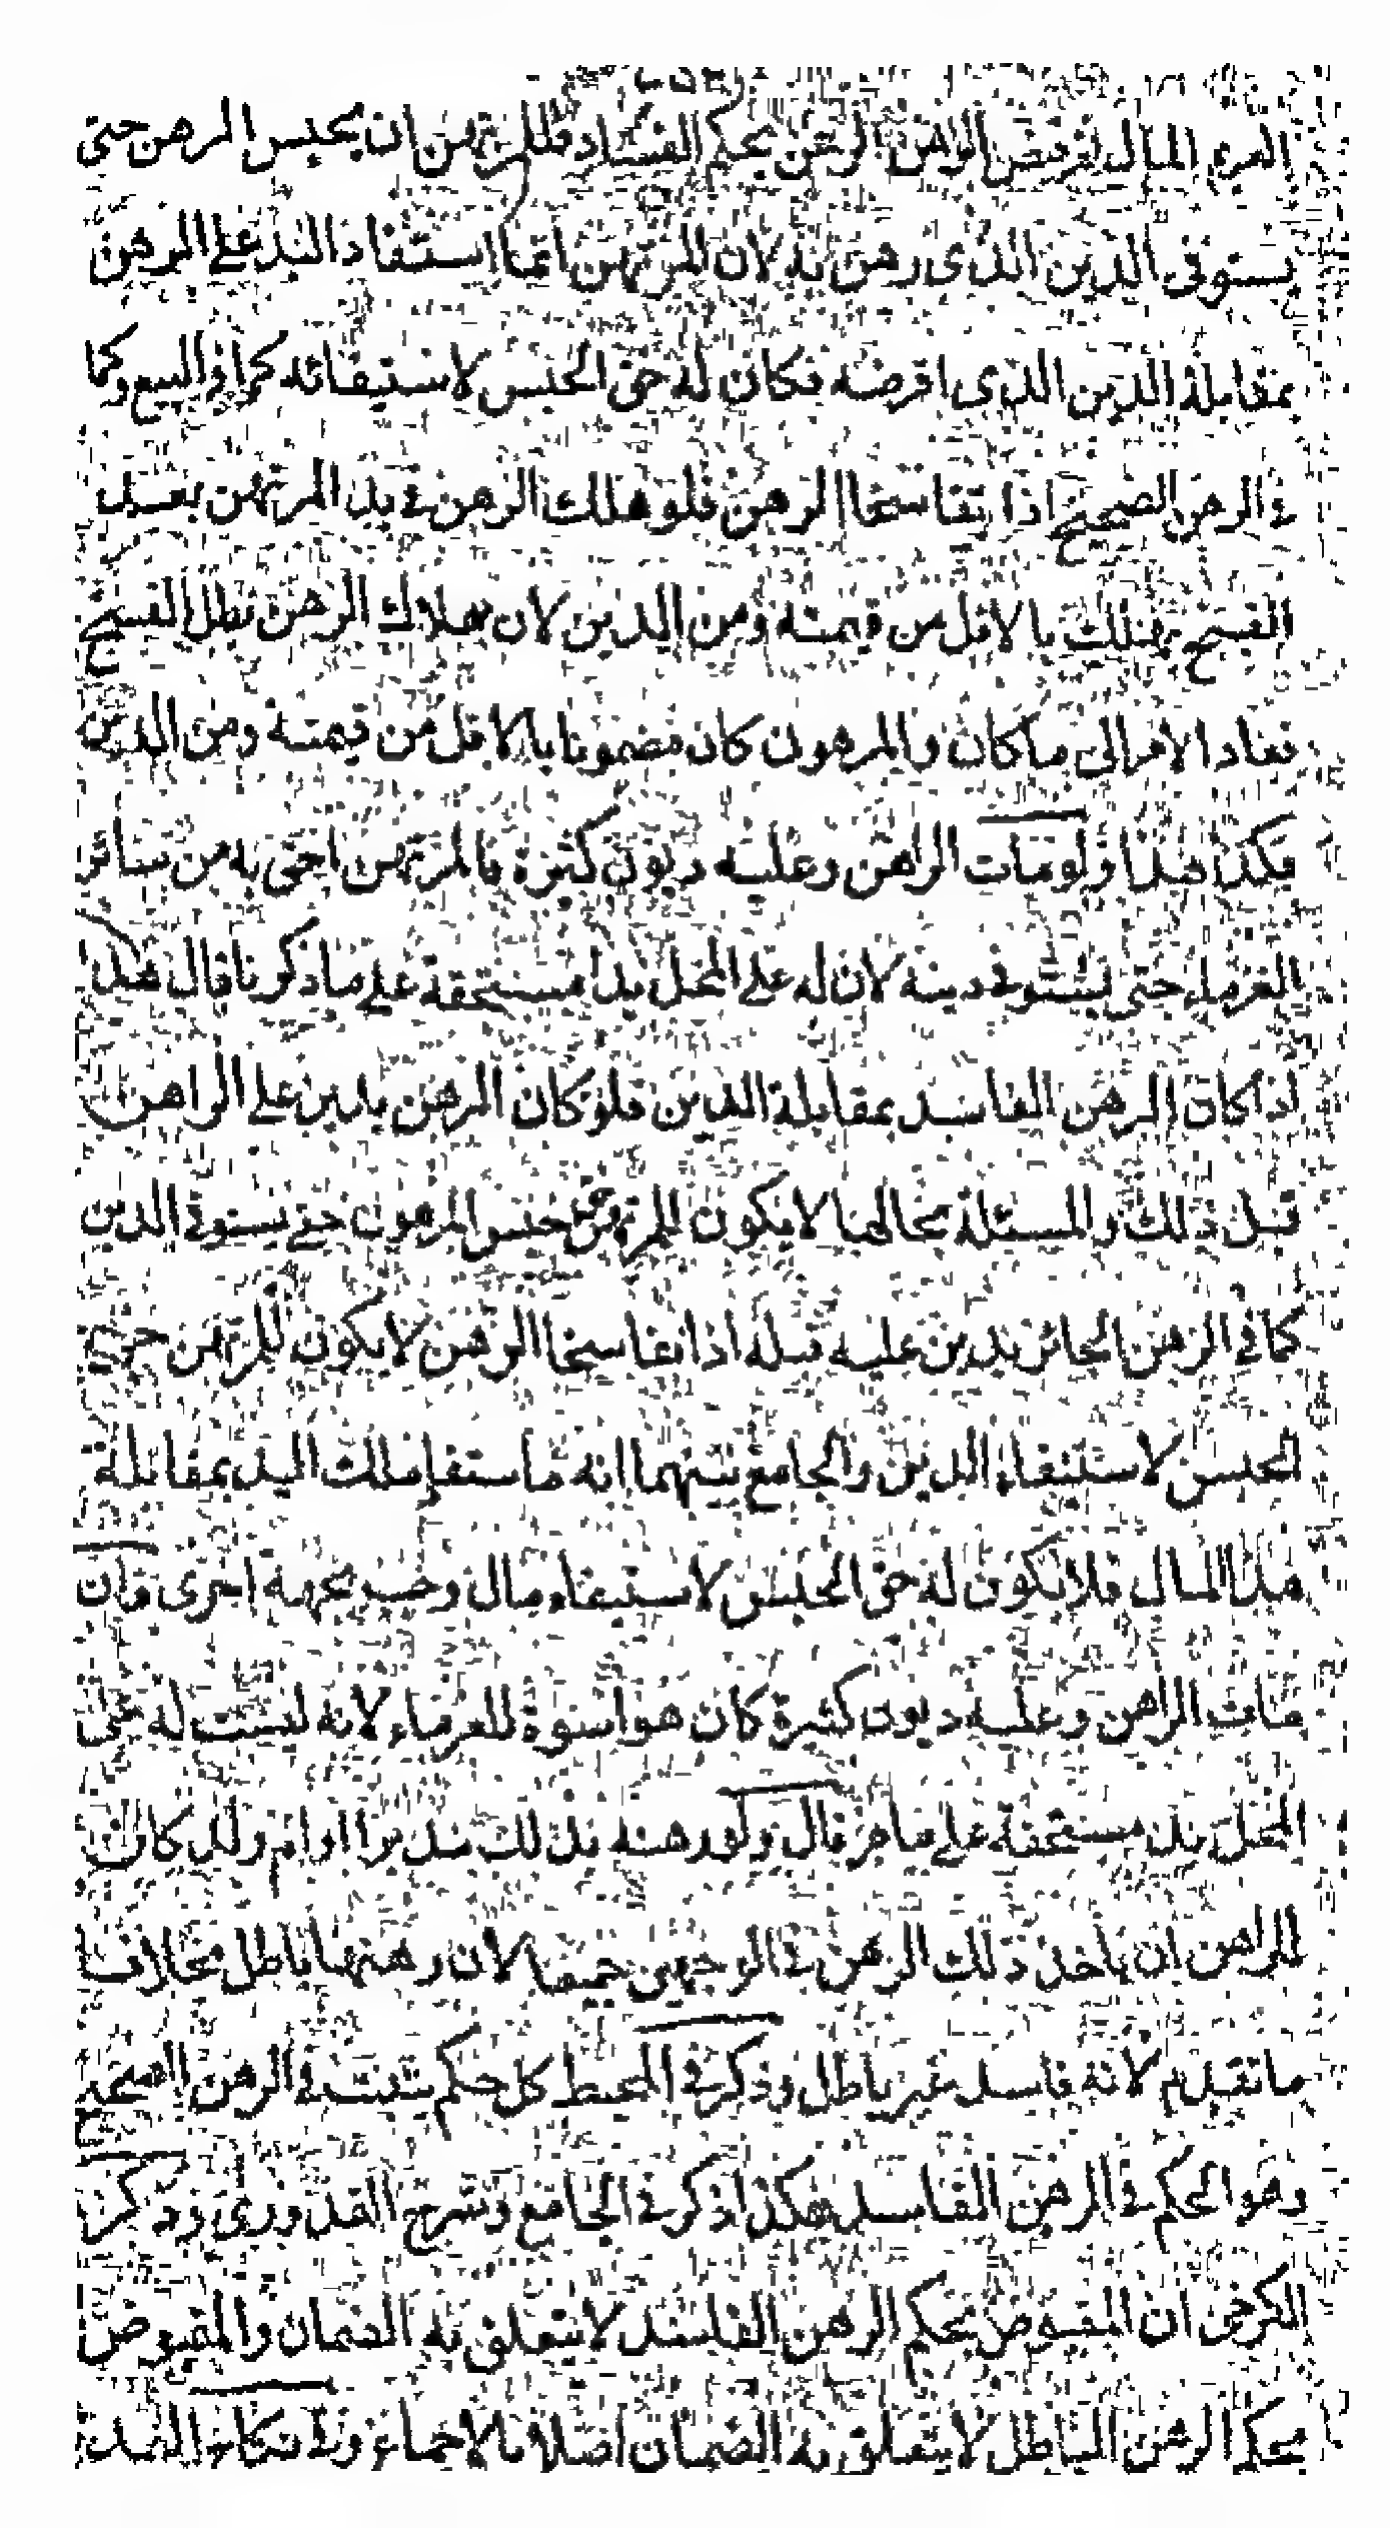 المرء المال ثم نقض الراهن الرهن بحكم الفساد فللمرتهن ان يحبس الرهن حتى
يستوفى الدين الذى رهن به لان المرتهن انما استفاد اليد على الرهن
بمقابلة الدين الذى اقرضه فكان له حق الحبس لاستيفائه كما فى البيع وكما
فى الرهن الصحيح اذا تفاسخا الرهن فلو هلك الرهن فى يد المرتهن بعد
الفسخ يهلك بالاقل من قيمته ومن الدين لان بهلاك الرهن بطل الفسخ
فعاد الامر الى ما كان والمرهون كان مضمونا بالاقل من قيمته ومن الدين
فكذا هذا ولو مات الراهن وعليه ديون كثيرة فالمرتهن احق به من سائر
الغرماء حتى يستوفى دينه لان له على المحل يدا مستحقة على ما ذكرنا قال هذا
اذا كان الرهن الفاسد بمقابلة الدين فلو كان الرهن بدين على الراهن
قبل ذلك والمسئلة بحالها لا يكون للمرتهن حبس المرهون حتى يستوفى الدين
كما فى الرهن الجائز بدين عليه قبله اذا تفاسخا الرهن لا يكون للمرتهن حق
الحبس لاستيفاء الدين والجامع بينهما انه ما استفاد تلك اليد بمقابلة
هذا المال فلا يكون له حق الحبس لاستيفاء مال وجب بجهة اخرى فان
مات الراهن وعليه ديون كثيرة كان هو اسوة للغرماء لانه ليست له على
المحل يد مستحقة على ما مر قال ولو رهنه بذلك مدبرا او ام ولد كان
للراهن ان ياخذ ذلك الرهن فى الوجهين جميعا لان رهنها باطل بخلاف
ما تقدم لانه فاسد غير باطل وذكر فى المحيط كل حكم يثبت فى الرهن الصحيح
وهو الحكم فى الرهن الفاسد هكذا ذكر فى الجامع وشرح القدورى وذكر
الكرخى ان المقبوض بحكم الرهن الفاسد لا يتعلق به الضمان والمقبوض
بحكم الرهن الباطل لا يتعلق به الضمان اصلا بالاجماع وفى